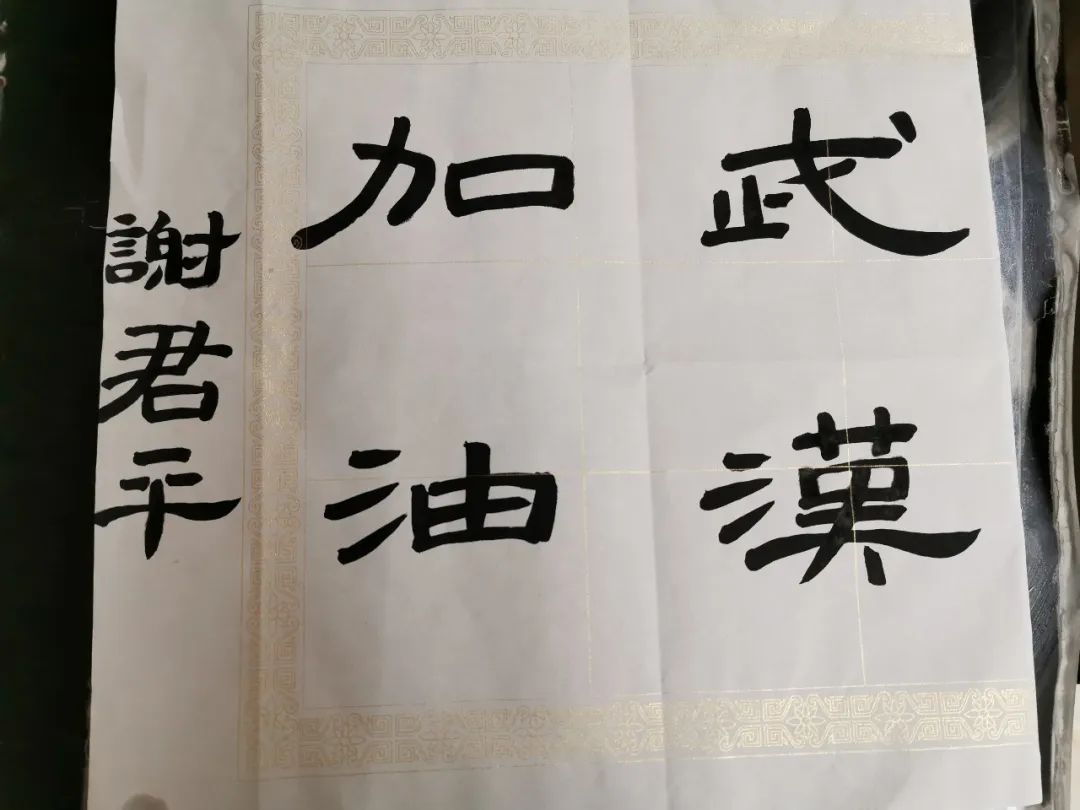 武漢
加油
謝君平